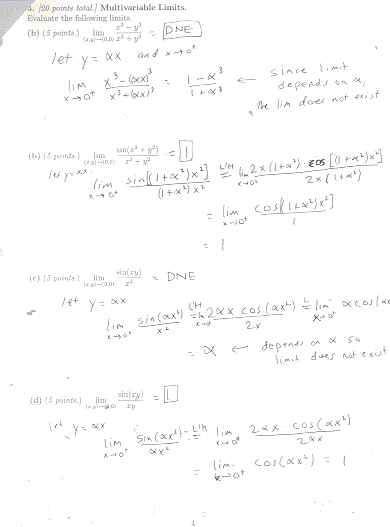 3. [20 points total.] Multivariable Limits.
Evaluate the following limits.
(b) (5 points.) lim (x,y)→(0,0) x³ − y³ / x³ + y³ = DNE
let y = αx and x→0⁺
lim x→0⁺ x³ − (αx)³ / x³ + (αx)³ = 1 − α³ / 1 + α³ ← since limit
depends on α,
the lim does not exist
(b) (5 points.) lim (x,y)→(0,0) sin(x² + y²) / x² + y² = 1
let y = αx.
lim x→0⁺ sin[(1+α²)x²] / (1+α²)x² L'H = lim x→0⁺ 2x(1+α²) · cos[(1+α²)x²] / 2x(1+α²)
= lim x→0⁺ cos[(1+α²)x²] / 1
= 1
(c) (5 points.) lim (x,y)→(0,0) sin(xy) / x² = DNE
let y = αx
lim x→0⁺ sin(αx²) / x² L'H = lim x→0⁺ 2αx cos(αx²) / 2x = lim x→0⁺ α cos(αx
= α ← depends on α so
limit does not exist
(d) (5 points.) lim (x,y)→(0,0) sin(xy) / xy = 1
let y = αx
lim x→0⁺ sin(αx²) / αx² L'H = lim x→0⁺ 2αx · cos(αx²) / 2αx
= lim x→0⁺ cos(αx²) = 1
4